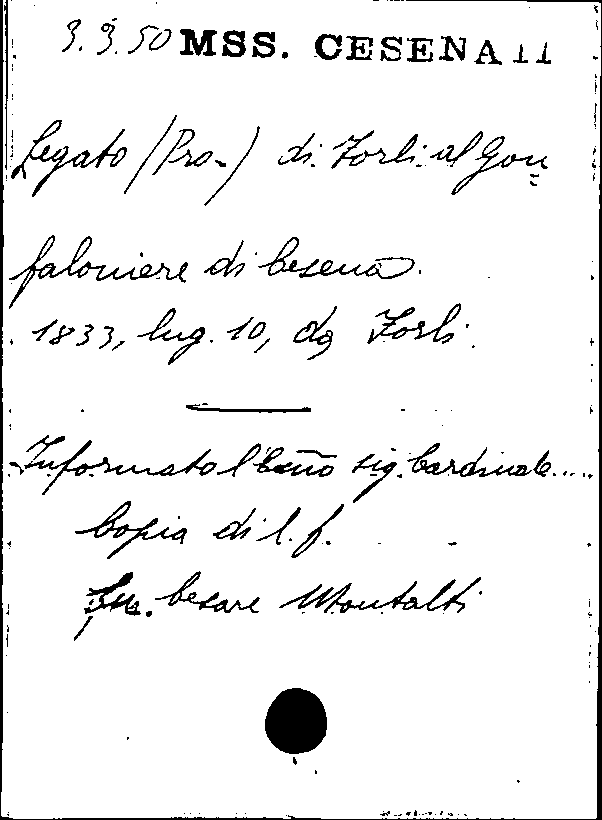 3.9.50 MSS. CESENA 11
Legato (Pro-) di Forlì al Gon=
faloniere di Cesena.
1833, lug. 10, da Forlì.
Informato l'Emo sig. Cardinale....
Copia di l. f.
Cesare Montalti